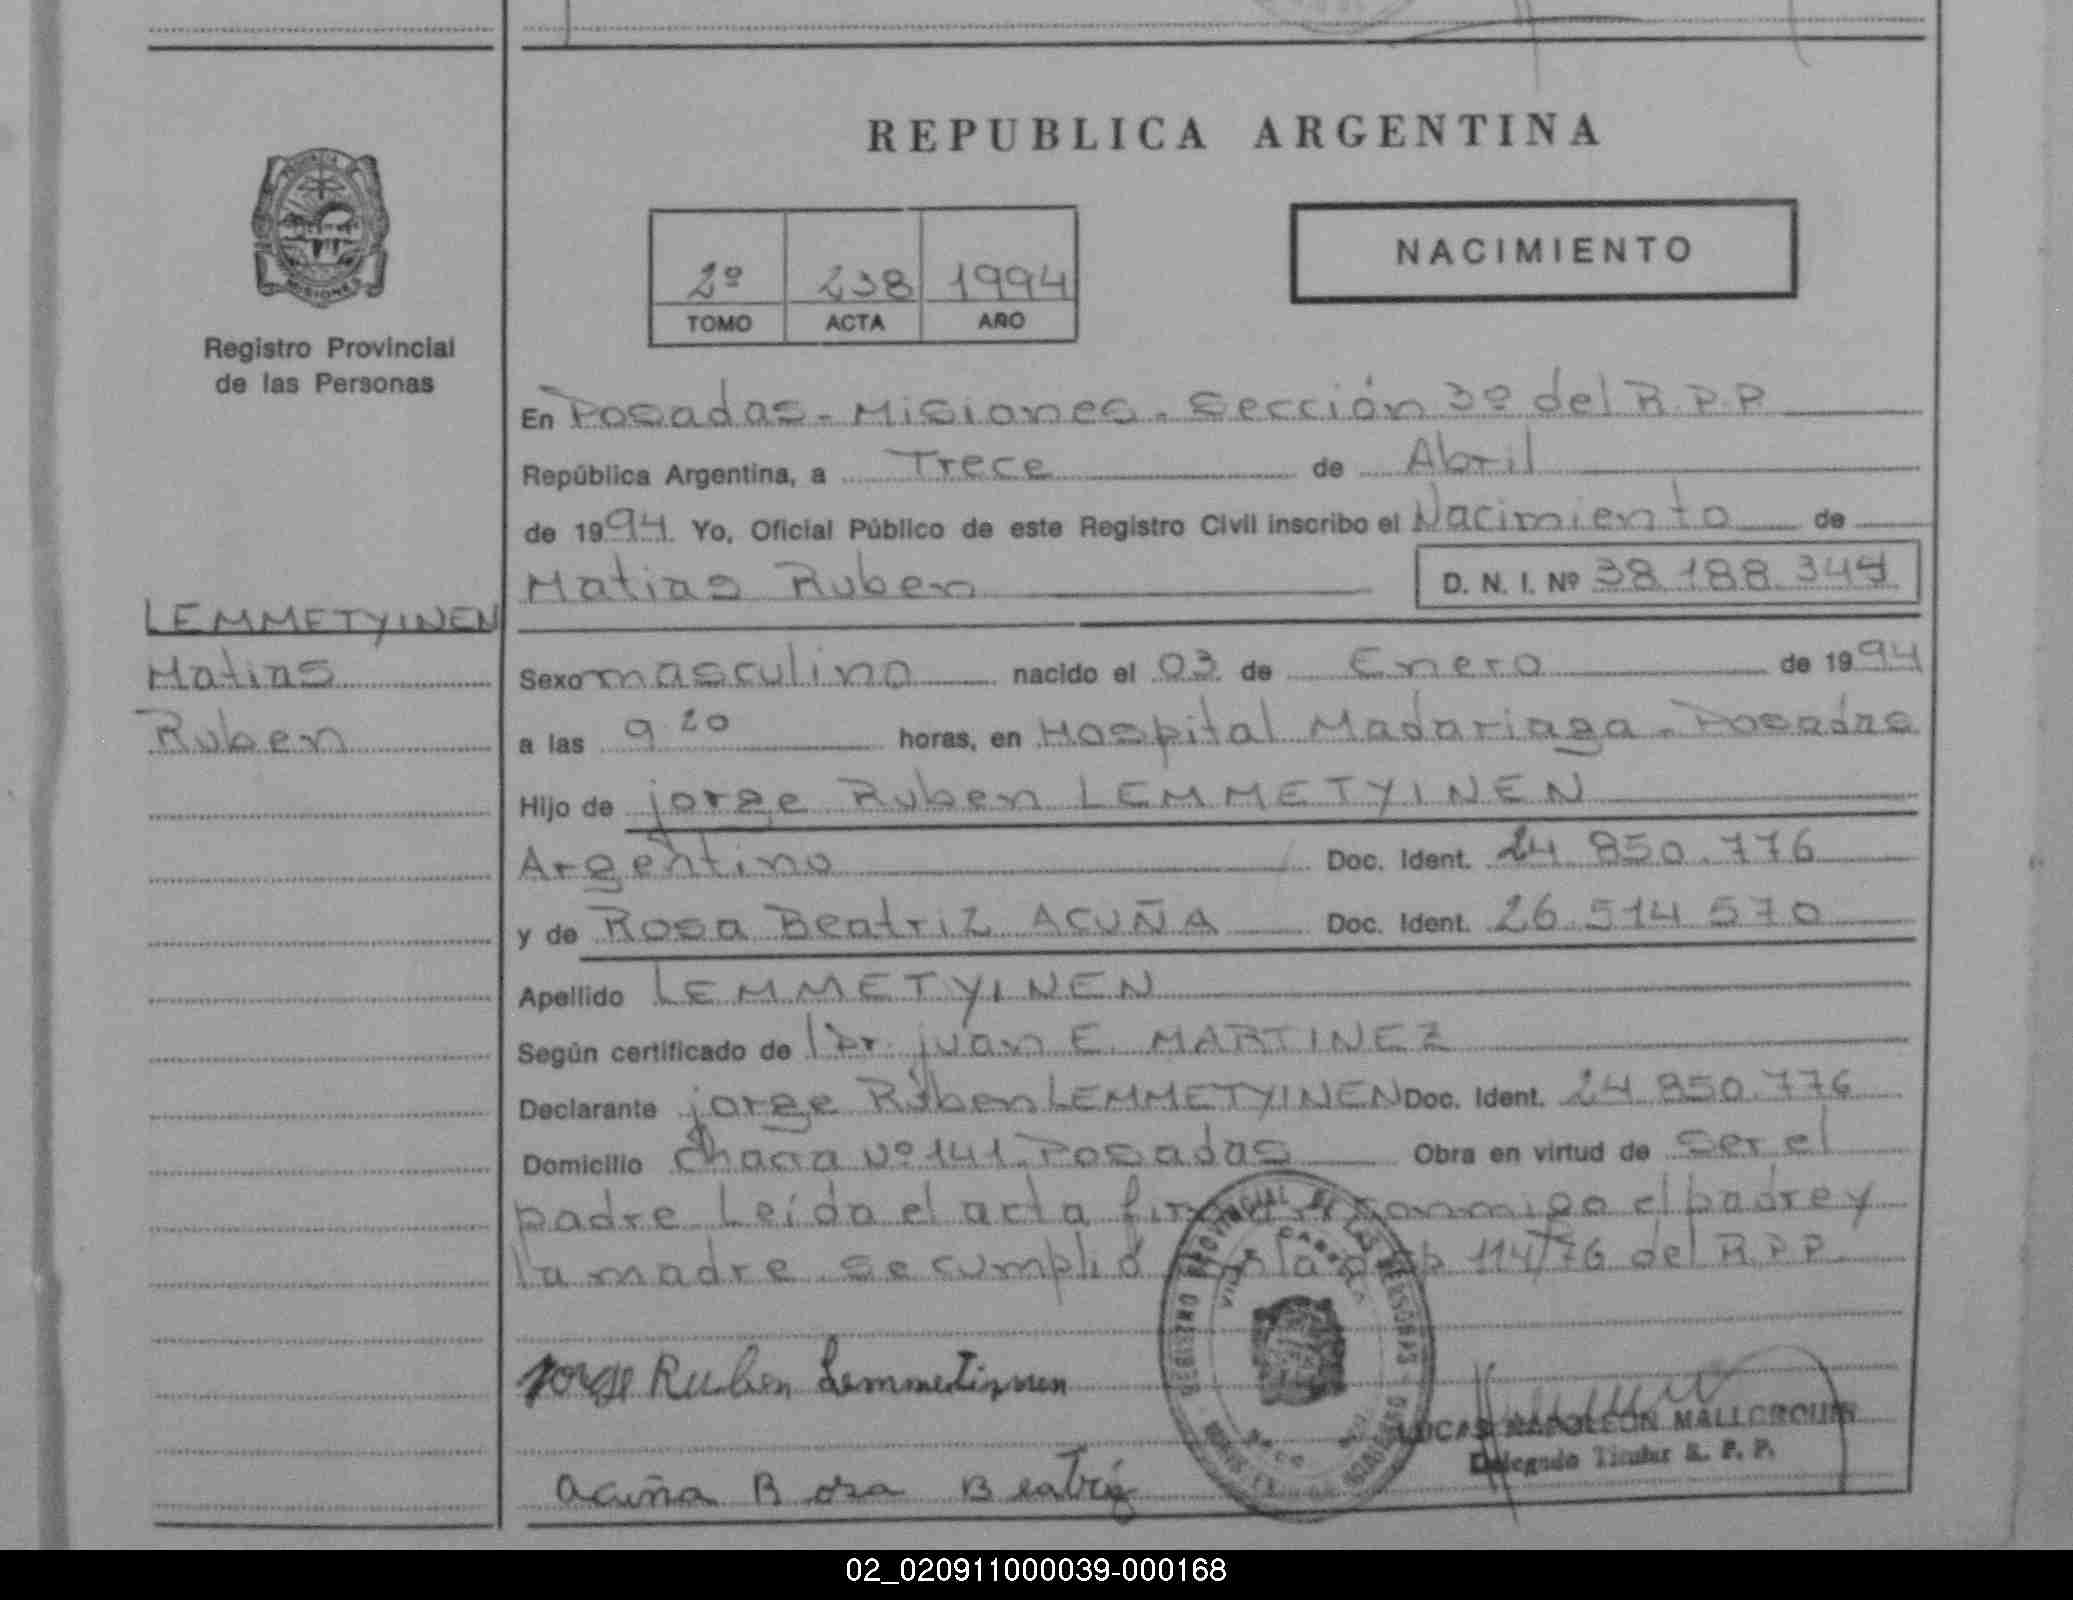 REPUBLICA ARGENTINA
NACIMIENTO
2º 238 1994
TOMO ACTA AÑO
Registro Provincial
de las Personas
LEMMETYINEN
Matias
Ruben
En Posadas - Misiones - Sección 3º del R.P.P
República Argentina, a Trece de Abril
de 1994. Yo, Oficial Público de este Registro Civil inscribo el Nacimiento de
Matias Ruben D. N. I. Nº 38.188.344
Sexo masculino nacido el 03 de Enero de 1994
a las 9 20 horas, en Hospital Madariaga - Posadas
Hijo de jorge Ruben LEMMETYINEN
Argentino Doc. Ident. 24 850.776
y de Rosa Beatriz ACUÑA Doc. Ident. 26.514 570
Apellido LEMMETYINEN
Según certificado de Dr. juan E. MARTINEZ
Declarante jorge Ruben LEMMETYINEN Doc. Ident. 24 850.776
Domicilio Nº 141 Posadas Obra en virtud de ser el
padre Leida el acta conmigo el padre y
la madre se cumplió 114/76 del R.P.P
REGISTRO PROVINCIAL DE LAS PERSONAS
VILLA CABELLO
Jorge Ruben Lemmetinen
LUCAS NAPOLEON MALLORQUIN
Delegado Titular R. P. P.
Acuña Rosa Beatriz
02_020911000039-000168